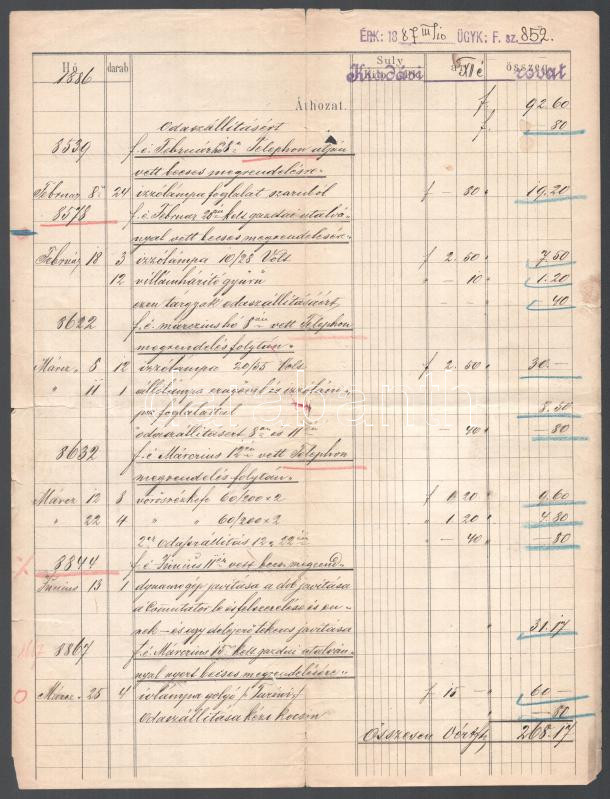 ÉRK: 1887 III/10 ÜGYK: F. sz. 852.
Hó darab Suly összeg
1886 Kiadási XI é rovat
Áthozat. f 92.60
Odaszállitásért f 80
8539 f. é. Februárhó 8án Telephon utján
vett becses megrendelésre
Februar 8án 24 izzólámpa foglalat szaruból f – 80 19.20
8578 f. é. Februar 20án kelt gazdai utalvá-
nyal vett becses megrendelésére
Februar 18 3 izzólámpa 10/28 Volt f 2.50 7.50
12 villámhárító gyürü – 10 1.20
ezen tárgyak odaszállitásáért 40
8622 f. é. márcziushó 8án vett Telephon
megrendelés folytán
Márcz 8 12 izzólámpa 20/55 Volt f 2.50 30.–
" 11 1 állólámpa és izzólám-
pa foglalattal 8.50
odaszállitásért 8án és 11én – 40 – 80
8632 f. é. Márczius 12én vett Telephon
megrendelés folytán
Márcz 12 8 vörösrézkefe 60/200 x 2 f 1.20 9.60
" 22 4 " " 60/200 x 2 1.20 4.80
odaszállitás 12 és 22én – 40 – 80
8844 f. é. Június 11én vett becs. megrend-
Június 13 1 dynamogép javitása a dob javitása
a Comutátor és felszerelése és en-
nek – és egy delejerőtekercs javitása 31.17
8867 f. é. Márczius 15 kelt gazdai utalván-
nyal nyert becses megrendelésére
Márcz 25 4 ivlámpa golyó f 15 – 60 –
Odaszállitása kézi kocsin – 80
Összesen Óért f 268.17